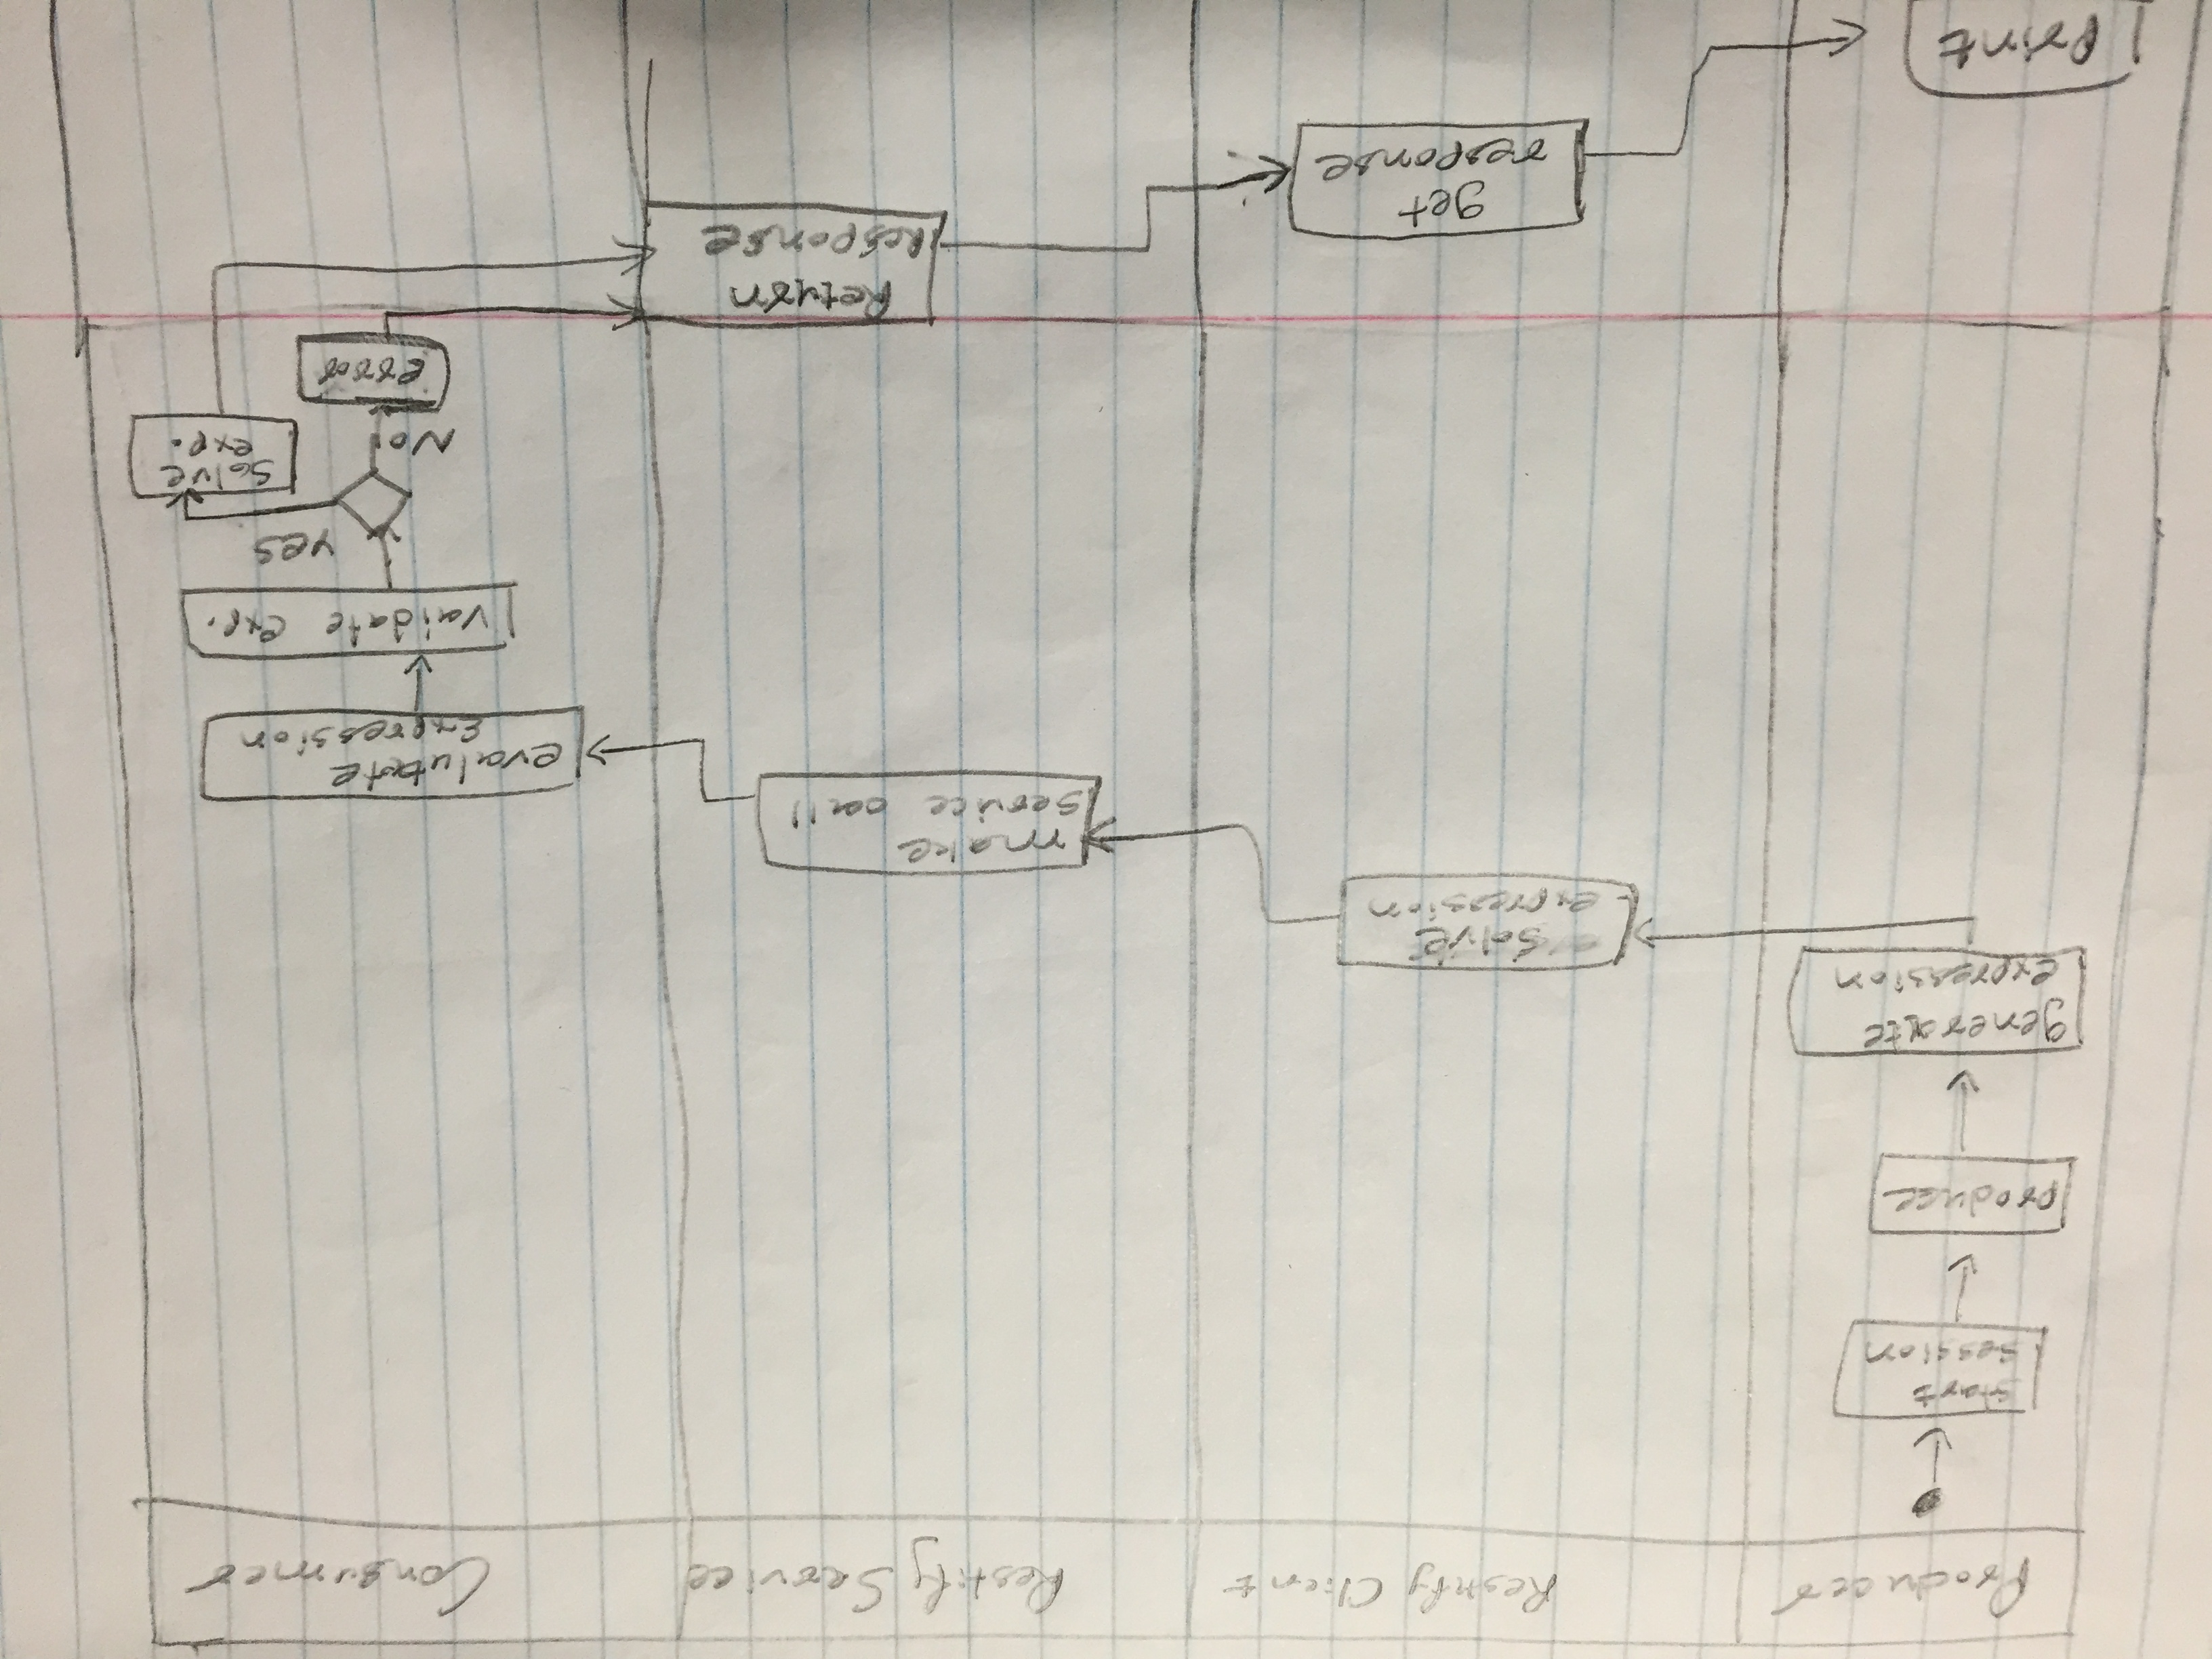 Producer Restify Client Restify Service Consumer
start
session
produce
generate
expression
solve
expression
make
service call
evalutate
Expression
Vaidate exp.
yes
Solve
exp.
No
error
Return
Response
get
response
print